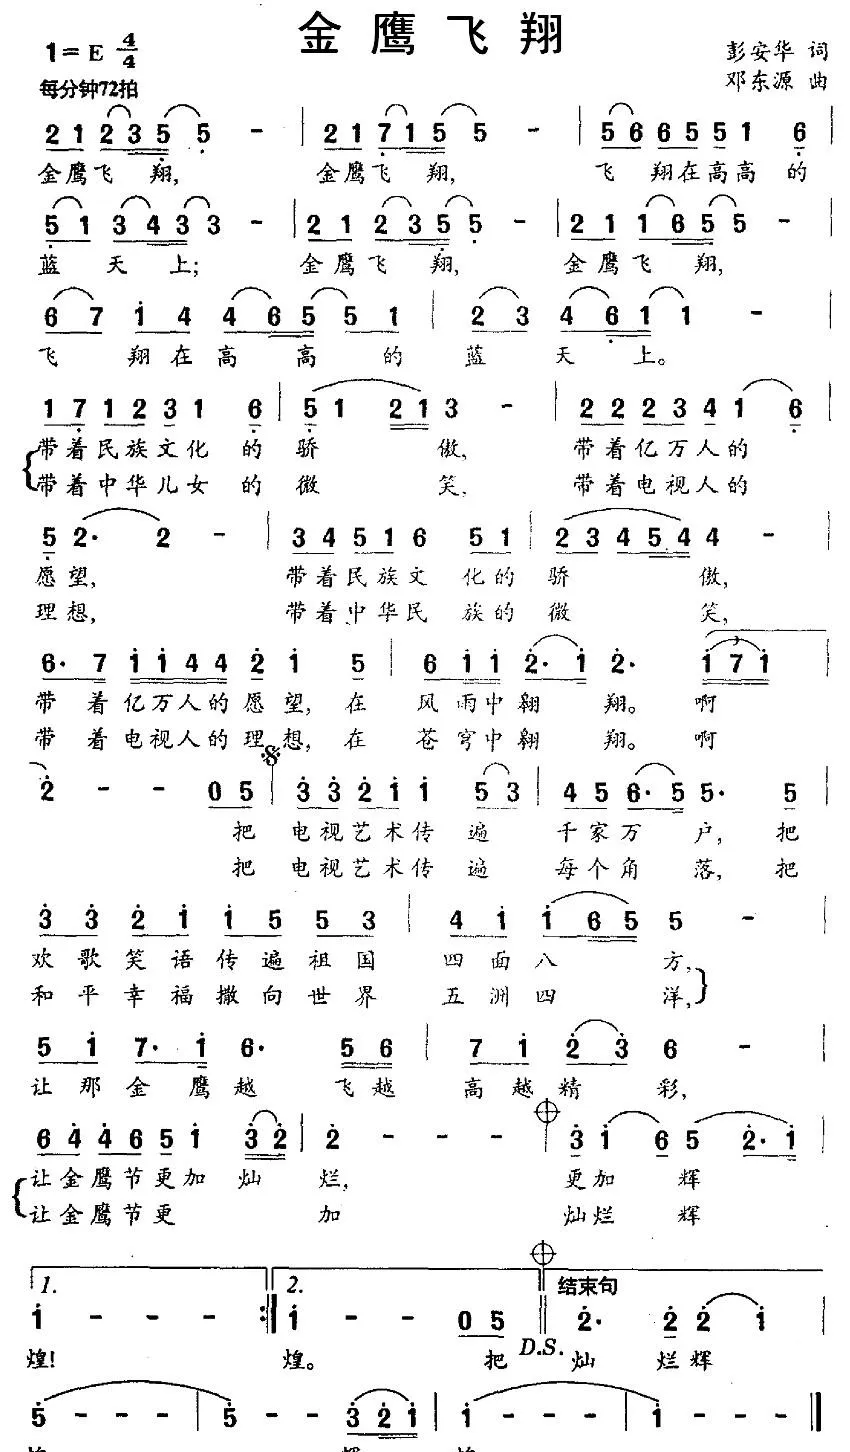 金鹰飞翔
1=E 4/4
彭安华 词
每分钟72拍
邓东源 曲
2 1 2 3 5 5 - | 2 1 7 1 5 5 - | 5 6 6 5 5 1 6 |
金鹰飞 翔, 金鹰飞 翔, 飞 翔在高高的
5 1 3 4 3 3 - | 2 1 2 3 5 5 - | 2 1 1 6 5 5 - |
蓝 天 上; 金鹰飞 翔, 金鹰飞 翔,
6 7 1 4 4 6 5 5 1 | 2 3 4 6 1 1 - |
飞 翔在高 高 的 蓝 天 上。
1 7 1 2 3 1 6 | 5 1 2 1 3 - | 2 2 2 3 4 1 6 |
带着民族文化 的 骄 傲, 带着亿万人的
带着中华儿女 的 微 笑, 带着电视人的
5 2· 2 - | 3 4 5 1 6 5 1 | 2 3 4 5 4 4 - |
愿望, 带着民族文 化的骄 傲,
理想, 带着中华民 族的微 笑,
6· 7 1 1 4 4 2 1 5 | 6 1 1 2· 1 2· 1 7 1 |
带 着亿万人的愿望, 在 风雨中翱 翔。 啊
带 着电视人的理想, 在 苍穹中翱 翔。 啊
2 - - 0 5 | 3 3 2 1 1 5 3 | 4 5 6· 5 5· 5 |
把 电视艺术传 遍 千家万 户, 把
把 电视艺术传 遍 每个角 落, 把
3 3 2 1 1 5 5 3 | 4 1 1 6 5 5 - |
欢歌笑语传遍祖国 四面八 方,
和平幸福撒向世界 五洲四 洋,
5 1 7· 1 6· 5 6 | 7 1 2 3 6 - |
让那金鹰越 飞越 高越精 彩,
6 4 4 6 5 1 3 2 | 2 - - - | 3 1 6 5 2· 1 |
让金鹰节更加 灿 烂, 更加 辉
让金鹰节更 加 灿烂 辉
1. 2. 结束句
1 - - - :| 1 - - 0 5 || 2· 2 2 1 |
煌! 煌。 把 D.S. 灿 烂辉
5 - - - | 5 - - 3 2 1 | 1 - - - | 1 - - - ||